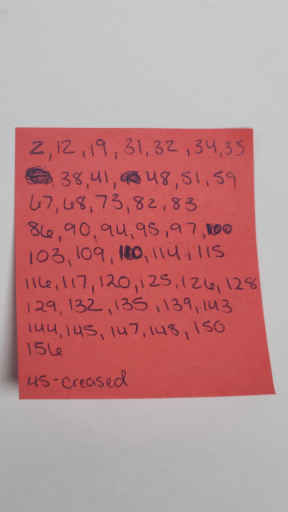 2, 12, 19, 31, 32, 34, 35
38, 41, 48, 51, 59
67, 68, 73, 82, 83
86, 90, 94, 95, 97, 100
103, 109, 110, 114, 115
116, 117, 120, 125, 126, 128
129, 132, 135, 139, 143
144, 145, 147, 148, 150
156
45-creased